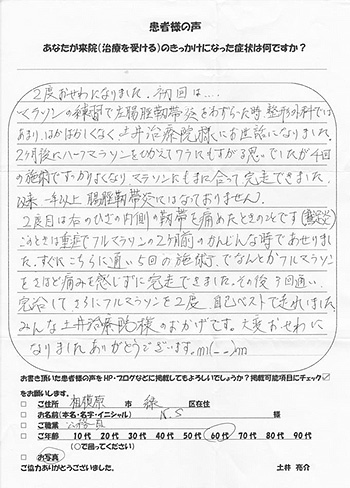 患者様の声
あなたが来院(治療を受ける)のきっかけになった症状は何ですか?
2度おせわになりました。初回は…
マラソンの練習で左腸脛靭帯炎をわずらった時、整形外科では
あまりはかばかしくなく土井治療院様にお世話になりました。
2ヶ月後にハーフマラソンをひかえてワラにもすがる思いでしたが4回
の施術ですっかりよくなりマラソンにもまに合って完走できました。
以来一年以上腸脛靭帯炎にはなっておりません。
2度目は右のひざの内側の靭帯を痛めたときのことです
このときは重症でフルマラソンの2ケ月前のかんじんな時であせりまし
た。すぐにこちらに通い5回の施術で、なんとかフルマラソン
をさほど痛みを感じずに完走できました。その後 回通い
完治して さらにフルマラソンを2度 自己ベストで走れました
みんな土井治療院様のおかげです。大変おせわに
なりました ありがとうございます。m(_ _)m
お書き頂いた患者様の声をHP・ブログなどに掲載してもよろしいでしょうか?掲載可能項目にチェック☑
をお願いします。
□ ご住所 相模原 市 緑 区在住
□ お名前(本名・名字・イニシャル) N.S 様
□ ご職業 公務員
□ ご年齢 10代 20代 30代 40代 50代 60代 70代 80代 90代
(○で囲ってください)
□ お写真
ご協力ありがとうございました。 土井 亮介